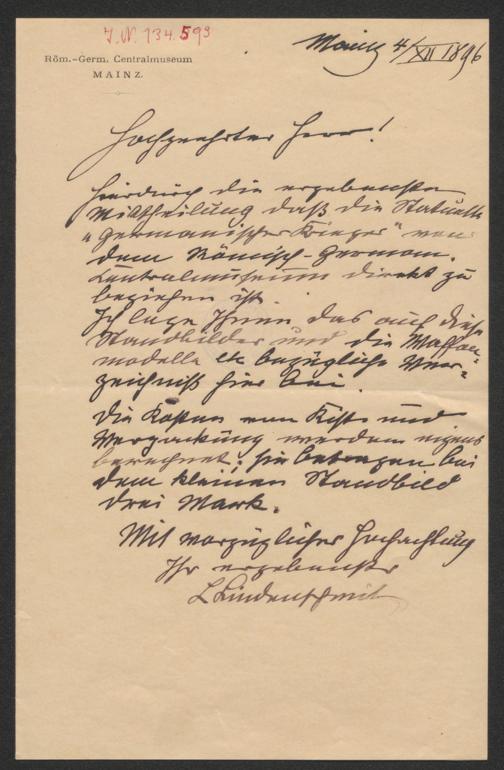 J.N. 134.593
Röm.-Germ. Centralmuseum
MAINZ.
Mainz 4/XII 1896
Hochgeehrter Herr!
Hierdurch die ergebenste
Mittheilung daß die Statuette
"Germanischer Krieger" von
dem Römisch-German.
Centralmuseum direkt zu
beziehen ist.
Ich lege Ihnen das auf diese
Standbilder und die Waffen-
modelle etc bezügliche Ver-
zeichniß hier bei.
Die Kosten von Kiste und
Verpackung werden eigens
berechnet; sie betragen bei
dem kleinen Standbild
drei Mark.
Mit vorzüglicher Hochachtung
Ihr ergebenster
L Lindenschmit